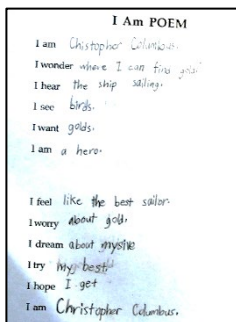 I Am POEM
I am Chistopher Columbus.
I wonder where I can find gold?
I hear the ship sailing.
I see birds.
I want golds.
I am a hero.
I feel like the best sailor.
I worry about gold.
I dream about
I try my best.
I hope I get
I am Christopher Columbus.